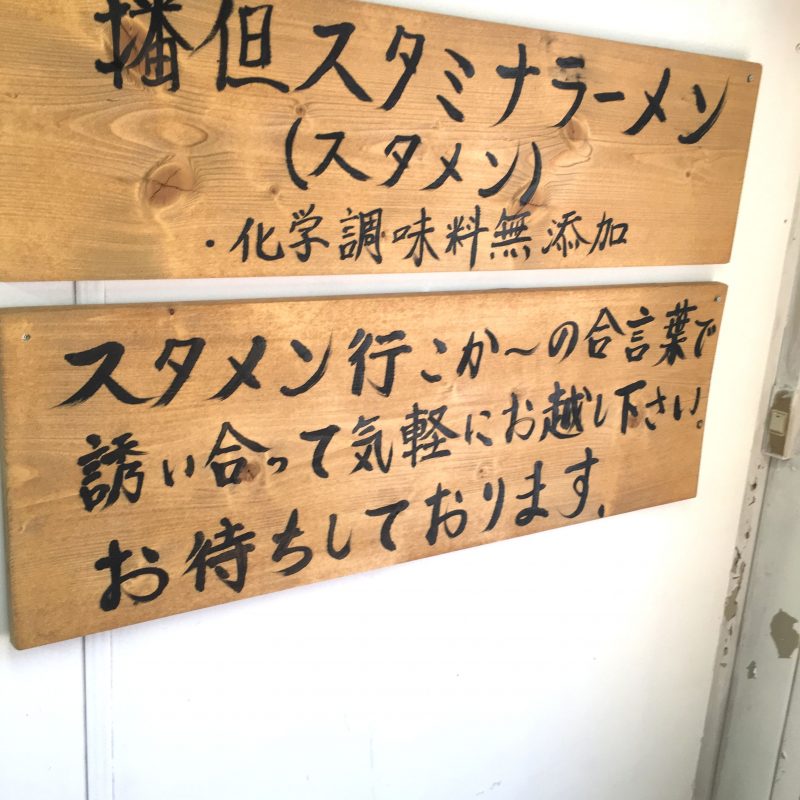 播但スタミナラーメン
(スタメン)
・化学調味料無添加
スタメン行こか～の合言葉で
誘い合って気軽にお越し下さい。
お待ちしております。